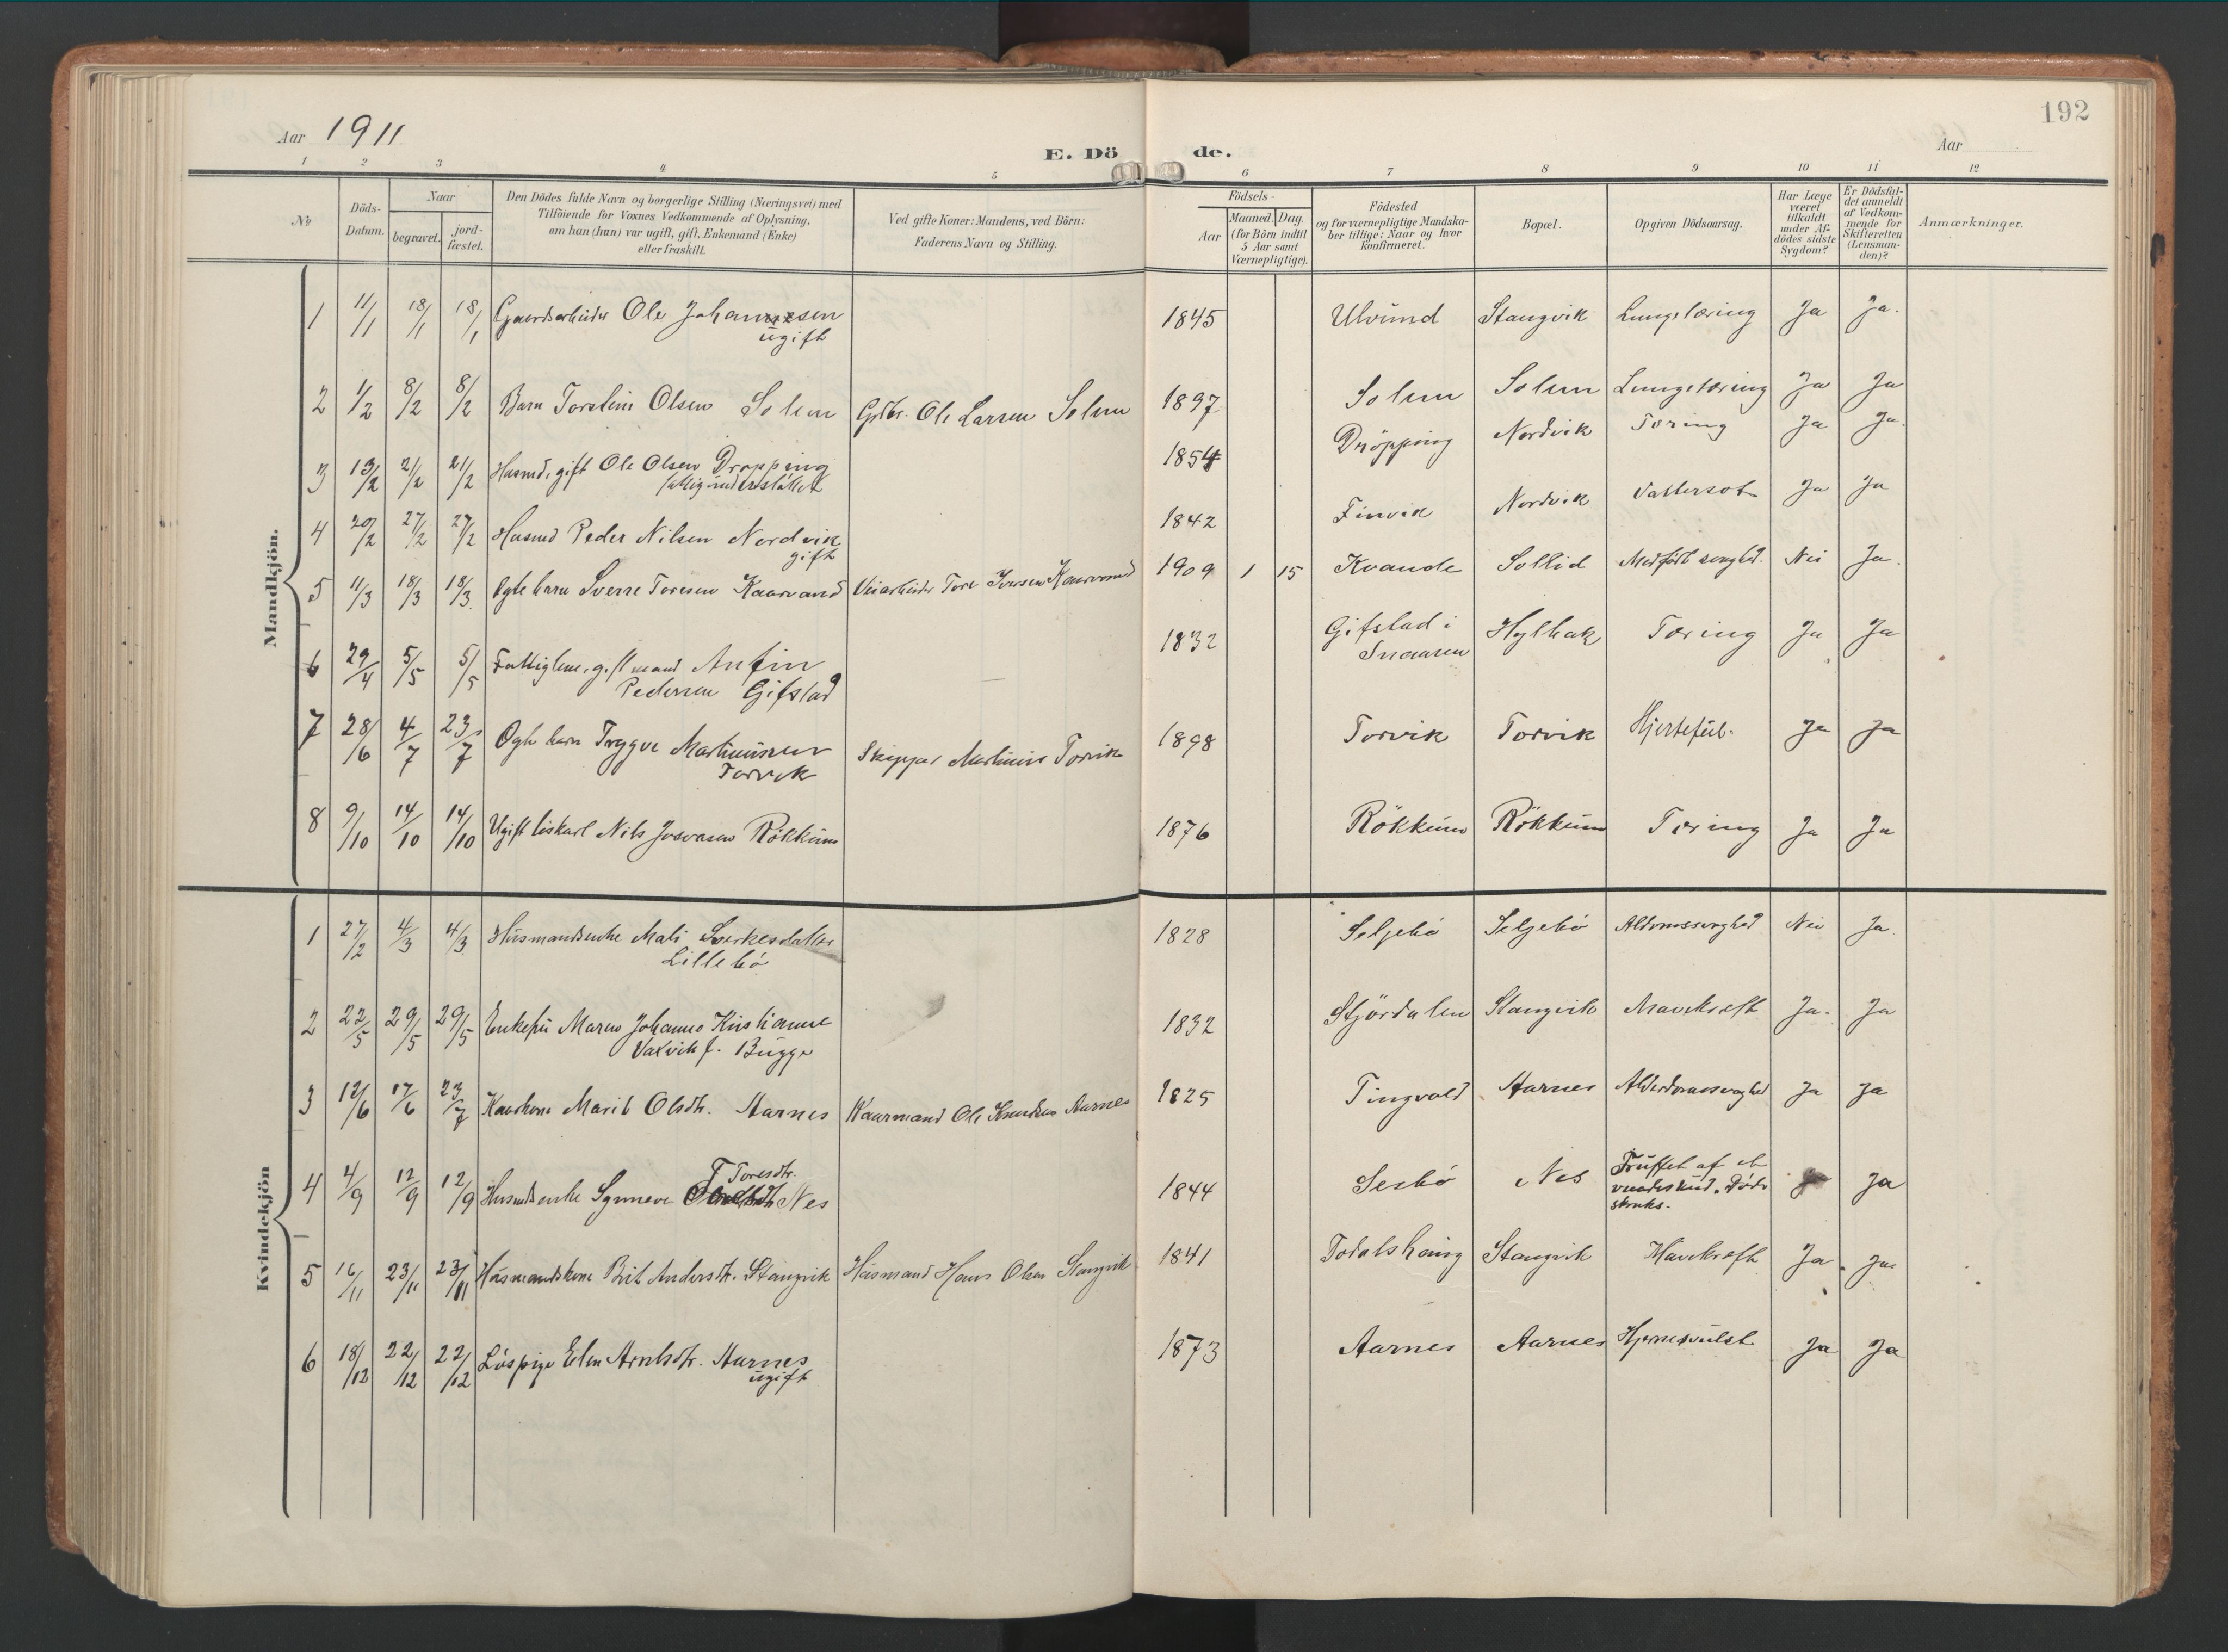 192
Aar 1911
E. Dö
de.
Aar
1 2 3 4 5 6 7 8 9 10 11 12
№
Döds-
Datum.
Naar
begravet.
jord-
fæstet.
Den Dödes fulde Navn og borgerlige Stilling (Næringsvei) med
Tilföiende for Voxnes Vedkommende af Oplysning,
om han (hun) var ugift, gift, Enkemand (Enke)
eller fraskilt.
Ved gifte Koner: Mandens, ved Börn:
Faderens Navn og Stilling.
Födsels-
Aar
Maaned. Dag.
(for Börn indtil
5 Aar samt
Værnepligtige).
Födested
og for værnepligtige Mandska-
ber tillige: Naar og hvor
konfirmeret.
Bopæl.
Opgiven Dödsaarsag.
Har Læge
været
tilkaldt
under Af-
dödes sidste
Sygdom?
Er Dödsfal-
det anmeldt
af Vedkom-
mende for
Skifteretten
(Lensman-
den)?
Anmærkninger.
Mandkjön.
1 11/1 18/1 18/1 Gaardarbeider Ole Johannesen 1845 Ulvund Stangvik Lungetæring Ja Ja.
ugift
2 1/2 8/2 8/2 Barn Torstein Olsen Solem Gdbr. Ole Larsen Solem 1897 Solem Solem Lungetæring Ja Ja
3 13/2 21/2 21/2 Husmd, gift Ole Olsen Dropping 1854 Dröpping Nordvik Tæring Ja Ja.
fattigunderstöttet
4 20/2 27/2 27/2 Husmd Peder Nilsen Nordvik 1842 Finvik Nordvik Vattersot Ja Ja
gift
5 11/3 18/3 18/3 Ægte barn Sverre Toresen Kaarvand Veiarbeider Tore Iversen Kaarvand 1909 1 15 Kvande Sollid Medfödt svaghed. Nei Ja.
6 29/4 5/5 5/5 Fattiglem, gift mand Anfin 1832 Gifstad i Hylbak Tæring Ja Ja
Pedersen Gifstad Snaasen
7 28/6 4/7 23/7 Ægte barn Trygve Martinussen Skipper Martinus Torvik 1898 Torvik Torvik Hjertefeil. Ja Ja
Torvik
8 9/10 14/10 14/10 Ugift löskarl Nils Josvasen Rökkum 1876 Rökkum Rökkum Tæring Ja Ja
Kvindekjön
1 27/2 4/3 4/3 Husmandsenke Mali Sverkesdatter 1828 Seljebö Seljebö Alderdomssvaghed Nei Ja.
Lillebö
2 22/5 29/5 29/5 Enkefru Maren Johanne Kristianne 1832 Stjördalen Stangvik Mavekræft Ja. Ja
f. Bugge
3 12/6 17/6 23/7 Kaarkone Marit Olsdtr. Aarnes Kaarmand Ole Knudsen Aarnes 1825 Tingvold Aarnes Alderdomssvaghed Ja Ja
4 4/9 12/9 12/9 Husmdsenke Synneve Toresdtr. Nes 1844 Sesbö Nes Truffet af et Ja
vaadeskud. Döde
straks.
5 16/11 23/11 23/11 Husmandskone Brit Andersdtr. Stangvik Husmand Hans Olsen Stangvik 1841 Todalshaug Stangvik Mavekræft Ja. Ja
6 18/12 22/12 22/12 Löspige Elen Arntsdtr. Aarnes 1873 Aarnes Aarnes Hjernesvulst Ja Ja
ugift